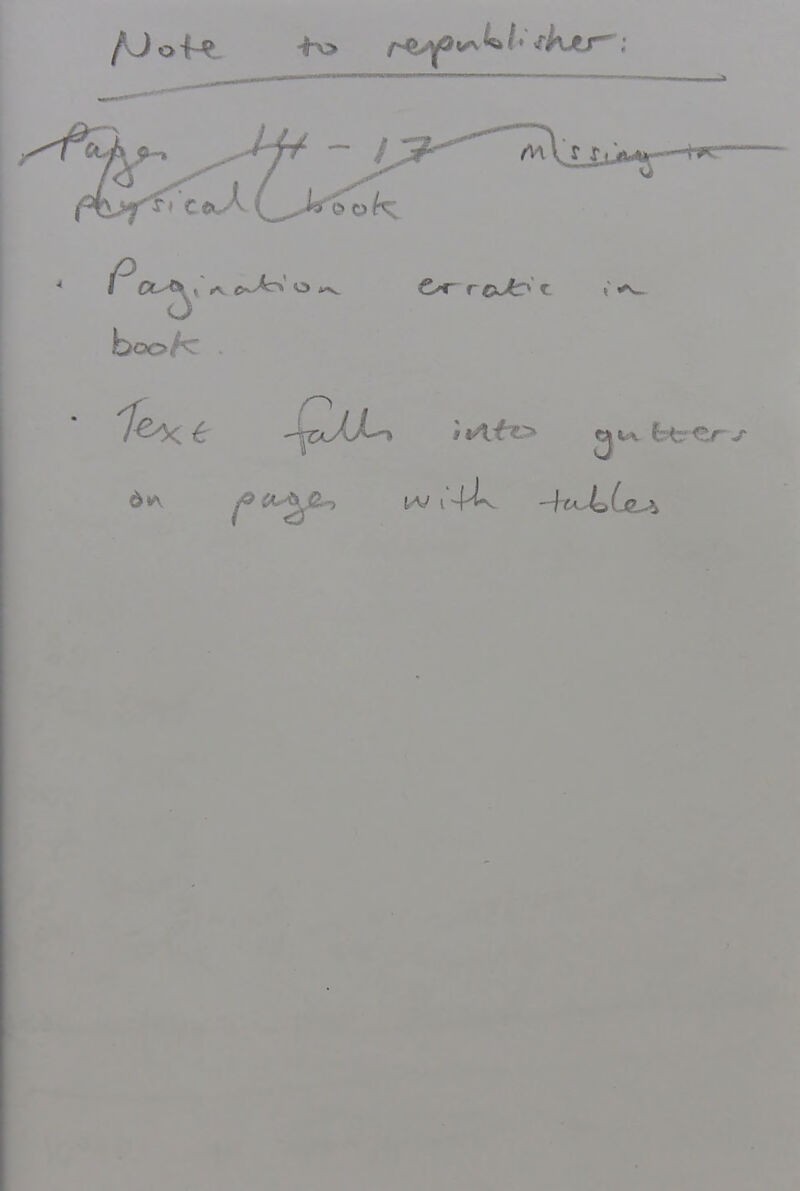 Note to republisher:
Pages 14-17 missing in
physical book
· Pagination erratic in
book.
· Text falls into gutters
on pages with tables